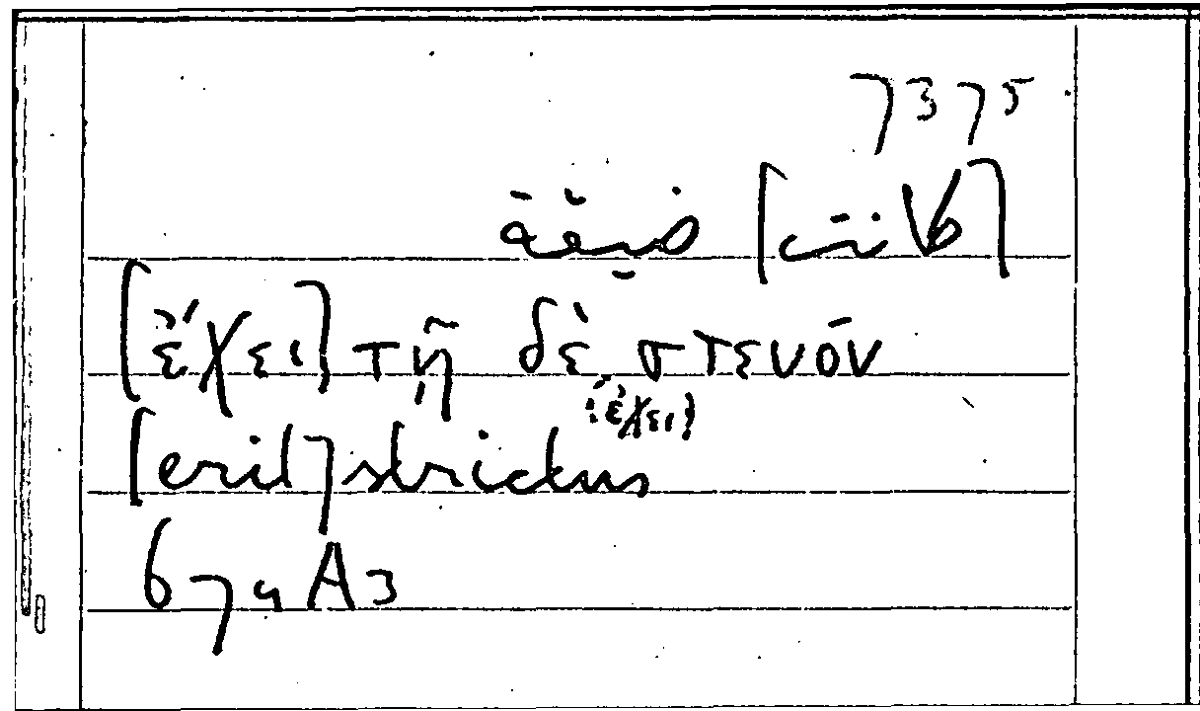 7375
[ἔχει] τῇ δὲ στενόν
{ἔχει}
[erit] strictus
674 A3